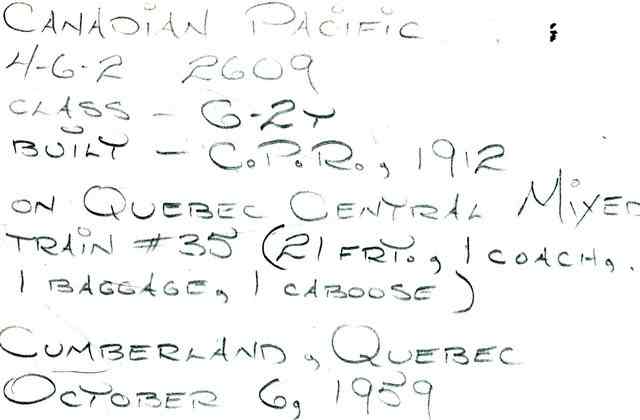 CANADIAN PACIFIC
4-6-2 2609
CLASS - G-2r
BUILT - C.P.R., 1912
ON QUEBEC CENTRAL MIXED
TRAIN #35 (21 FRT., 1 COACH,
1 BAGGAGE, 1 CABOOSE)
CUMBERLAND, QUEBEC
OCTOBER 6, 1959